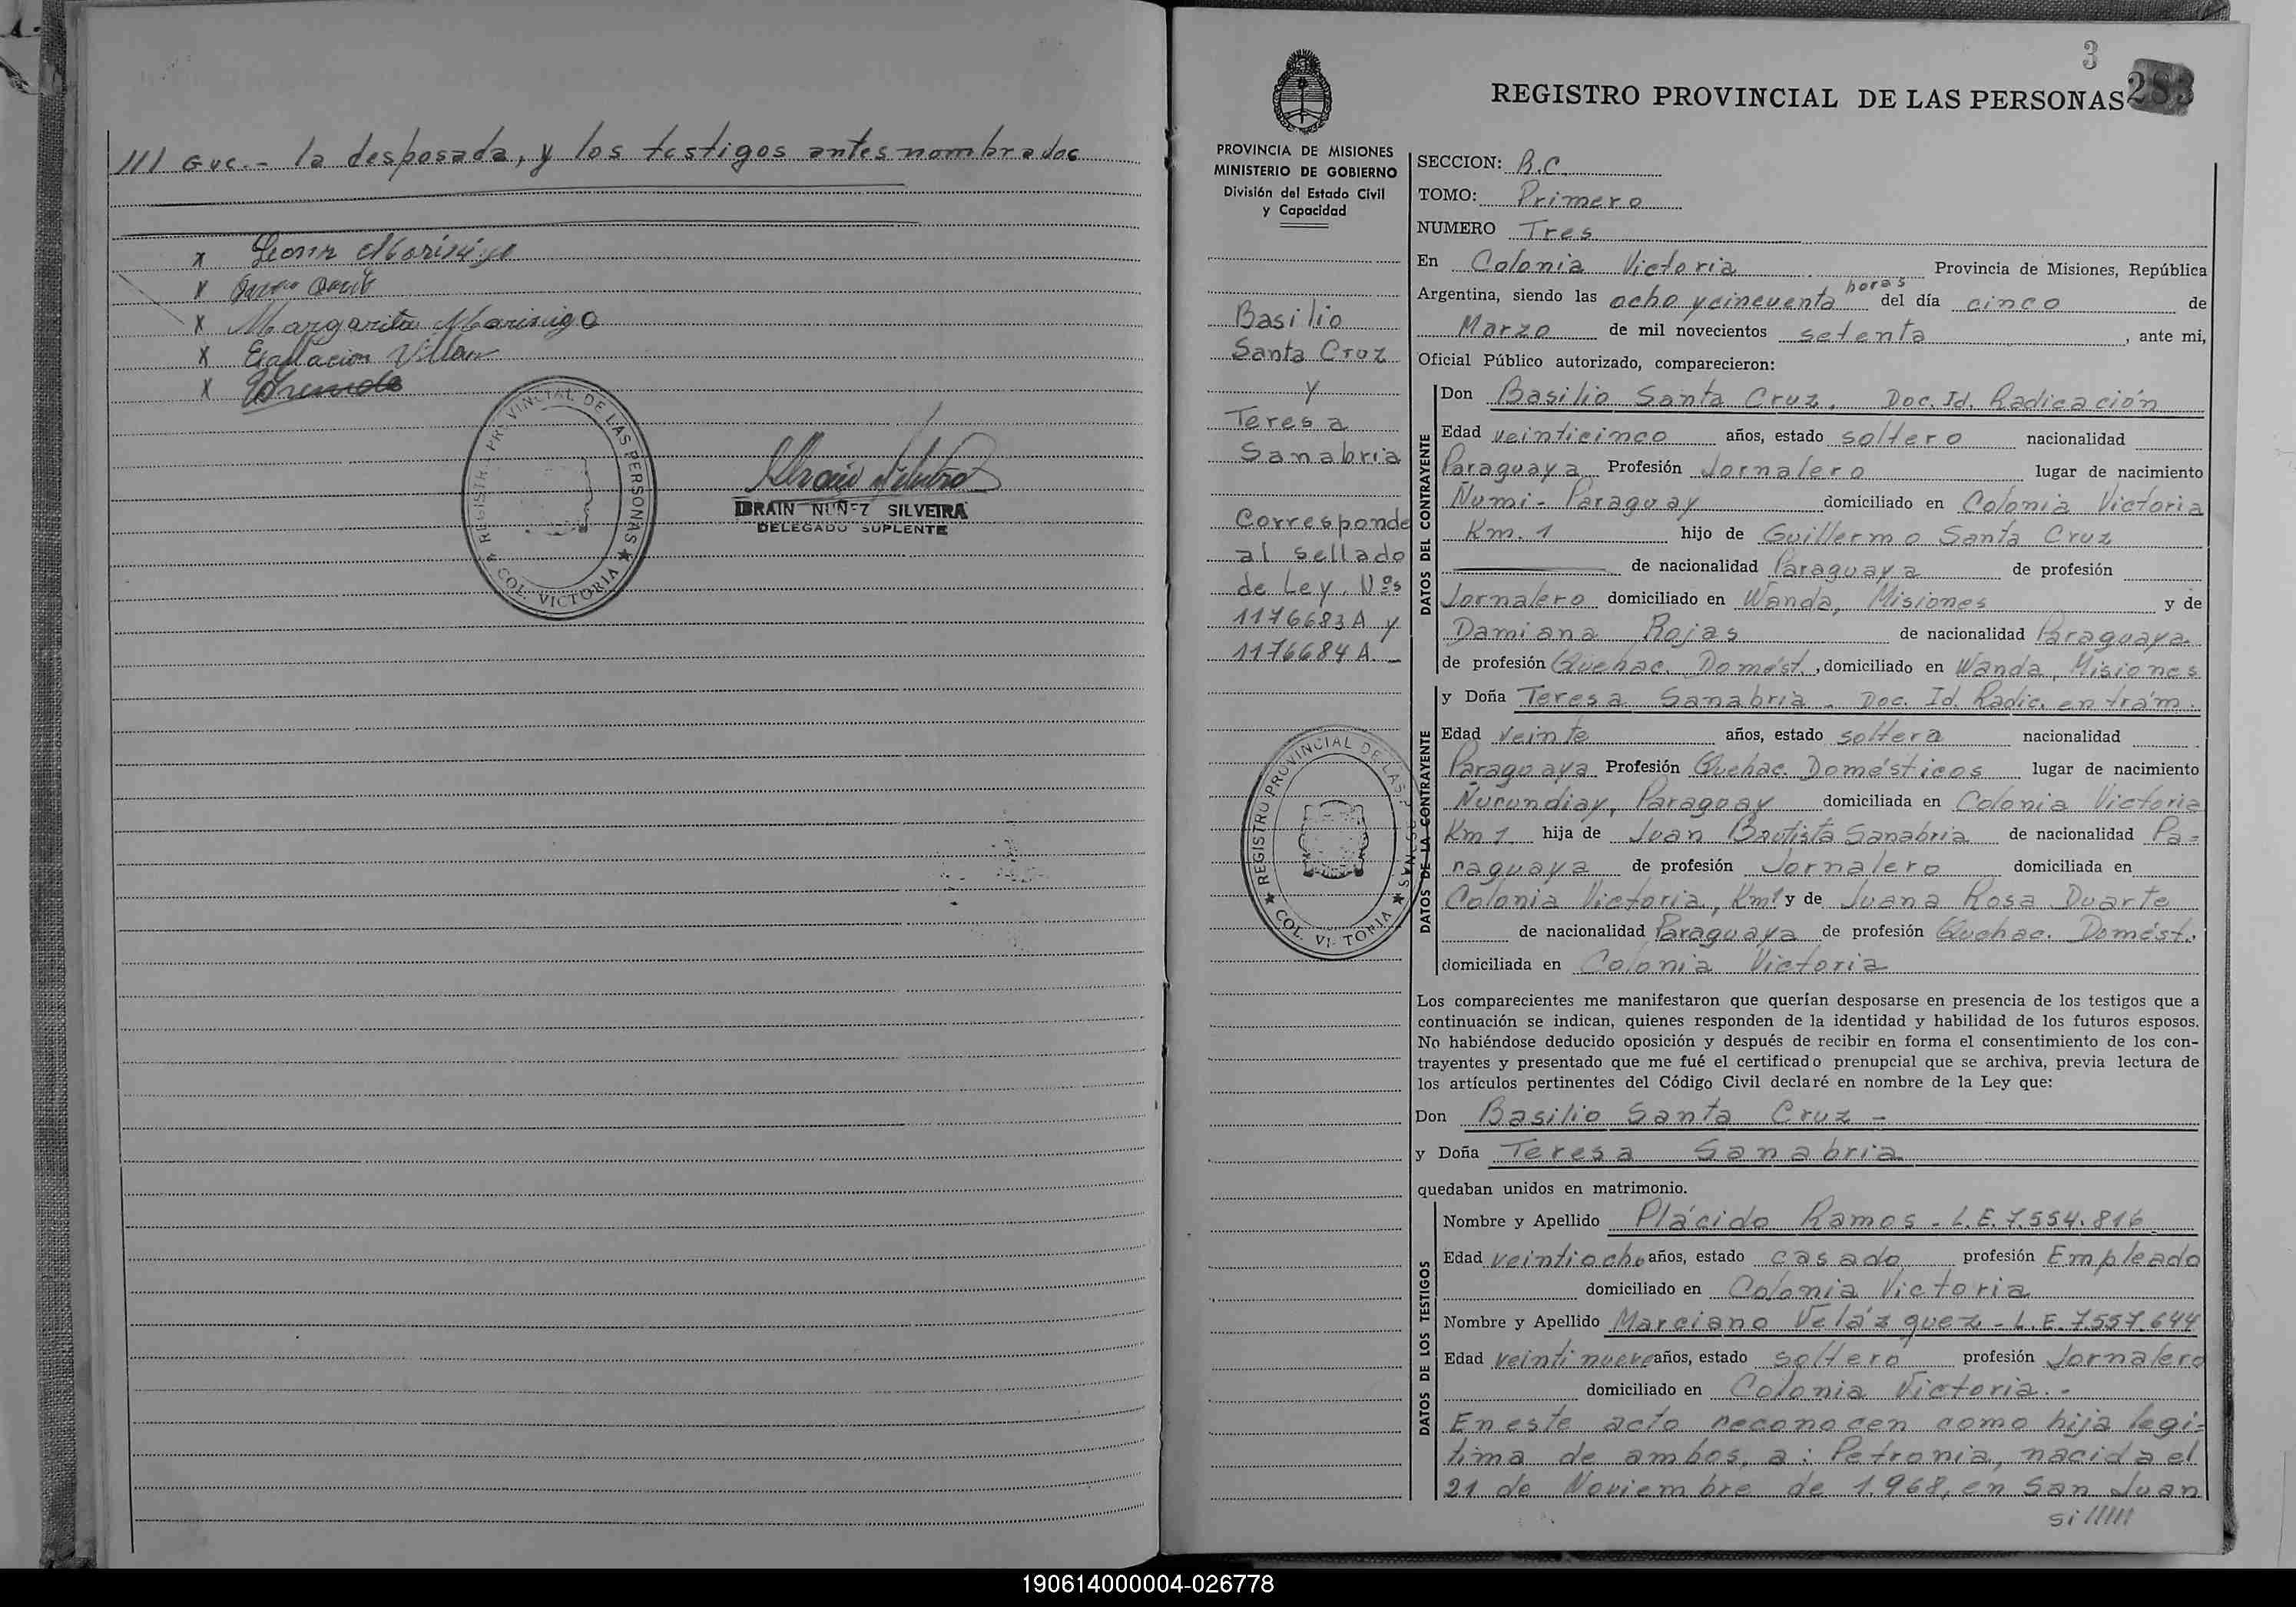 /// Gue.- la desposada, y los testigos antes nombrados
x Leonor Mariñigo
x
x Margarita Mariñigo
x Villar
x
REGISTRO PROVINCIAL DE LAS PERSONAS
COL. VICTORIA
IBRAIN NUÑEZ SILVEIRA
DELEGADO SUPLENTE
3
REGISTRO PROVINCIAL DE LAS PERSONAS 283
PROVINCIA DE MISIONES
MINISTERIO DE GOBIERNO
División del Estado Civil
y Capacidad
Basilio
Santa Cruz
y
Teresa
Sanabria
Corresponde
al sellado
de Ley. Nºs
1176683A y
1176684A.-
REGISTRO PROVINCIAL DE LAS PERSONAS
COL. VICTORIA
SECCION: R.C.
TOMO: Primero
NUMERO Tres
En Colonia Victoria Provincia de Misiones, República
Argentina, siendo las ocho y cincuenta horas del día cinco de
Marzo de mil novecientos setenta, ante mi,
Oficial Público autorizado, comparecieron:
DATOS DEL CONTRAYENTE
Don Basilio Santa Cruz. Doc. Id. Radicación
Edad veinticinco años, estado soltero nacionalidad
Paraguaya Profesión Jornalero lugar de nacimiento
Ñumi - Paraguay domiciliado en Colonia Victoria
Km. 1 hijo de Guillermo Santa Cruz
de nacionalidad Paraguaya de profesión
Jornalero domiciliado en Wanda, Misiones y de
Damiana Rojas de nacionalidad Paraguaya.
de profesión Quehac. Domést., domiciliado en Wanda, Misiones
DATOS DE LA CONTRAYENTE
y Doña Teresa Sanabria - Doc. Id. Radic. en trám.
Edad veinte años, estado soltera nacionalidad
Paraguaya Profesión Quehac. Domésticos lugar de nacimiento
Ñurundiay, Paraguay domiciliada en Colonia Victoria
Km 1. hija de Juan Bautista Sanabria de nacionalidad Pa=
raguaya de profesión Jornalero domiciliada en
Colonia Victoria, Km 1 y de Juana Rosa Duarte
de nacionalidad Paraguaya de profesión Quehac. Domést.
domiciliada en Colonia Victoria
Los comparecientes me manifestaron que querían desposarse en presencia de los testigos que a
continuación se indican, quienes responden de la identidad y habilidad de los futuros esposos.
No habiéndose deducido oposición y después de recibir en forma el consentimiento de los con-
trayentes y presentado que me fué el certificado prenupcial que se archiva, previa lectura de
los artículos pertinentes del Código Civil declaré en nombre de la Ley que:
Don Basilio Santa Cruz -
y Doña Teresa Sanabria
quedaban unidos en matrimonio.
DATOS DE LOS TESTIGOS
Nombre y Apellido Plácido Ramos - L.E. 7.554.816
Edad veintiocho años, estado casado profesión Empleado
domiciliado en Colonia Victoria
Nombre y Apellido Marciano Velázquez - L.E. 7.557.644
Edad veintinueve años, estado soltero profesión Jornalero
domiciliado en Colonia Victoria.-
En este acto reconocen como hija legi=
tima de ambos, a: Petronia, nacida el
21 de Noviembre de 1.968, en San Juan
si //////
190614000004-026778